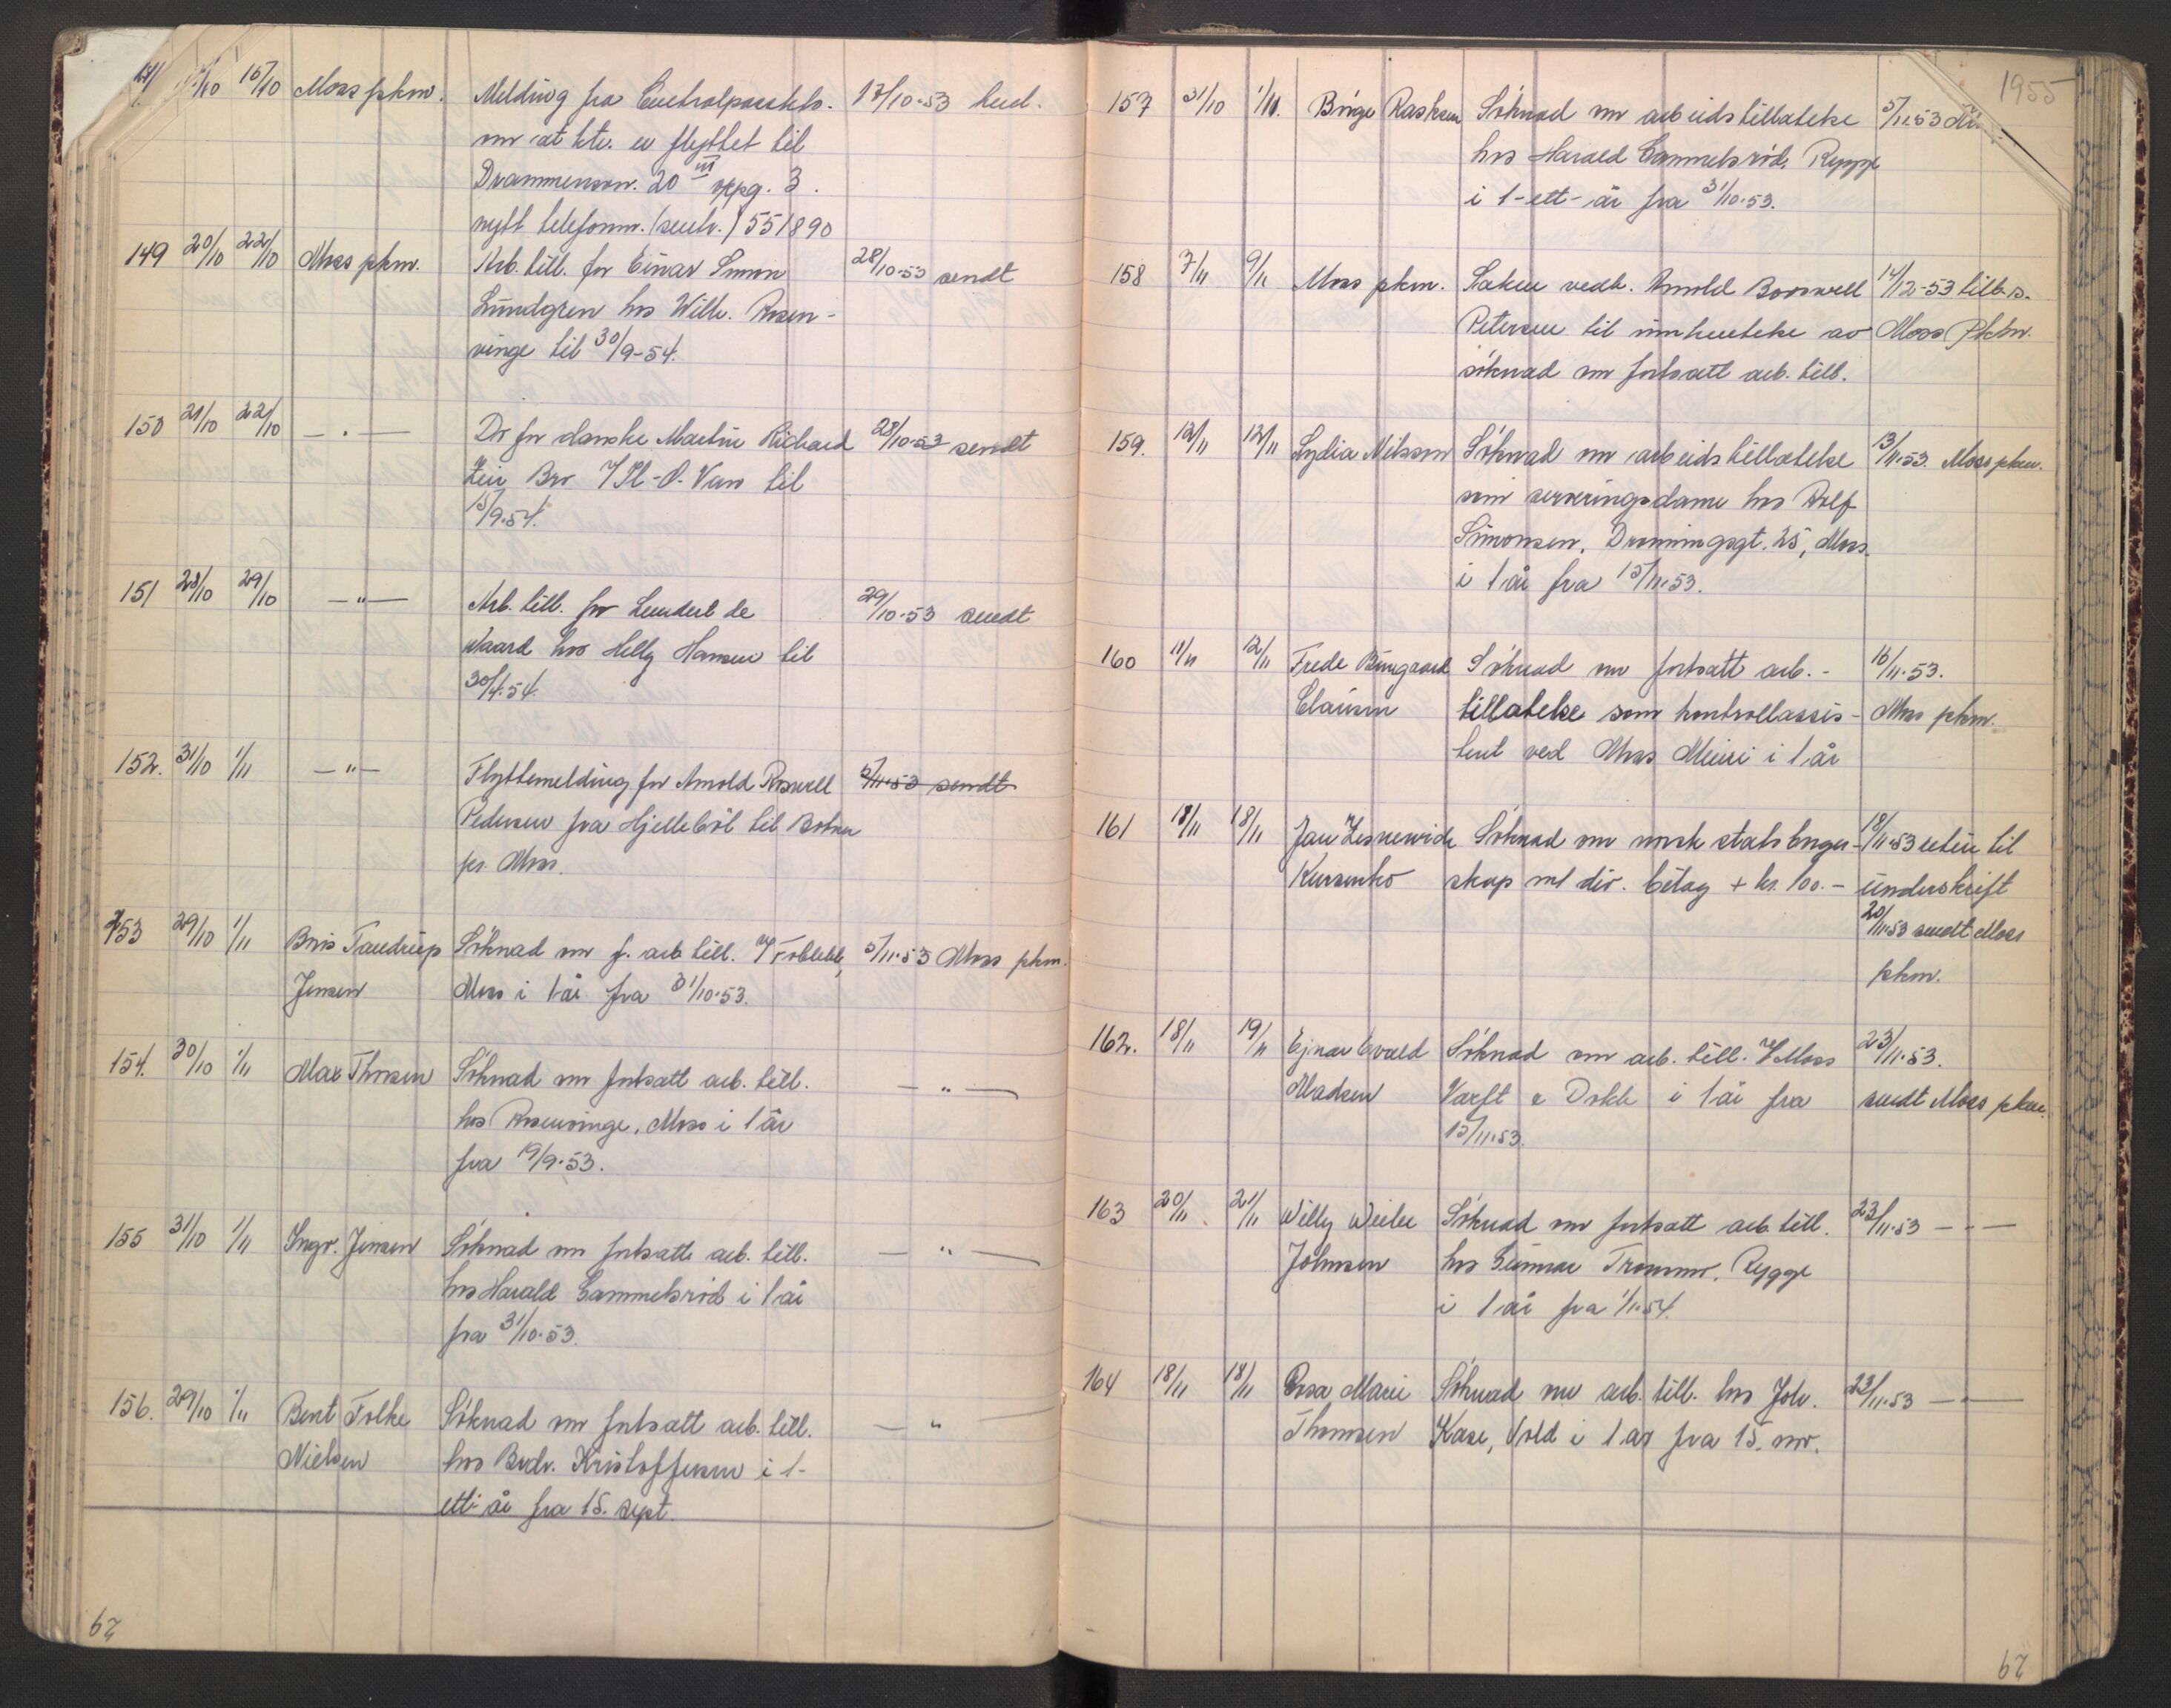 15/10 16/10 Moss pkm. Melding fra Centralpasskto. 17/10-53
om at ktr. er flyttet til
Drammensvn. 20 III oppg. 3.
nytt telefonnr. (sentr.) 551890
149 20/10 22/10 Moss pkm. Arb. till. for Einar Simon 28/10-53 sendt
Lundgren hos Wilh. Rosen-
vinge til 30/9-54.
150 21/10 22/10 — . — Do for danske Martin Richard 28/10-53 sendt
til
15/9-54.
151 28/10 29/10 — " — Arb. till. for Leendert de 29/10-53 sendt
Waard hos Helly Hansen til
30/4-54.
152. 31/10 1/11 — " — Flyttemelding for Arnold Roswell 5/11-53 sendt
Pedersen fra Hjellebøl til Botner
pr. Moss.
153 29/10 1/11 Tandrup Søknad om f. arb. till. 5/11-53 Moss pkm.
Jensen Moss i 1 år fra 31/10-53.
154. 30/10 1/11 Max Thorsen Søknad om fortsatt arb. till. — " —
hos Rosenvinge, Moss i 1 år
fra 19/9-53.
155 31/10 1/11 Ingv. Jensen Søknad om fortsatt arb. till. — " —
hos Harald Gammelsrød i 1 år
fra 31/10-53.
156. 29/10 1/11 Bent Folke Søknad om fortsatt arb. till. — " —
Nielsen hos Brdr. Kristoffersen i 1-
ett- år fra 15. sept.
62
1955
157 31/10 1/11. Børge Rasksen Søknad om arbeidstillatelse 5/11-53
hos Harald Gammelsrød, Rygge
i 1-ett-år fra 31/10-53.
158 7/11 9/11 Moss pkm. Saken vedk. Arnold Booswell 14/12-53 tilb. s.
Petersen til innhentelse av Moss Pkm.
søknad om fortsatt arb. till.
159. 12/11 12/11 Lydia Nilsson Søknad om arbeidstillatelse 13/11-53. Moss pkm.
som serveringsdame hos Rolf
Simonsen, Dronningsgt. 25, Moss.
i 1 år fra 15/11-53.
160 11/11 12/11 Frede Bungaard Søknad om fortsatt arb.- 16/11-53.
Clausen tillatelse som kontrollassis- Moss pkm.
tent ved Moss Meieri i 1 år
161 18/11 18/11 Jan Søknad om norsk statsborger- 18/11-53 retur til
skap m/ div. bilag + kr. 100.- underskrift
20/11-53 sendt Moss
pkm.
162. 18/11 19/11 Ejnar Evald Søknad om arb. till. v/Moss 23/11-53.
Madsen Værft & Dokk i 1 år fra sendt Moss pkm.
15/11-53.
163 20/11 21/11 Willy Søknad om fortsatt arb. till. 23/11-53 — " —
Johnsen hos Gunnar Rygge
i 1 år fra 1/1-54.
164 18/11 18/11 Rosa Marie Søknad om arb. till. hos Joh. 23/11-53 — " —
Thomsen Kase, Vold i 1 år fra 15. nov.
62